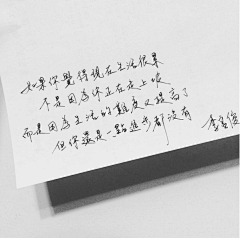 如果你覺得現在生活很累
不是因為你正在走上坡
而是因為生活的難度又提高了
但你還是一點進步都沒有
李客俊